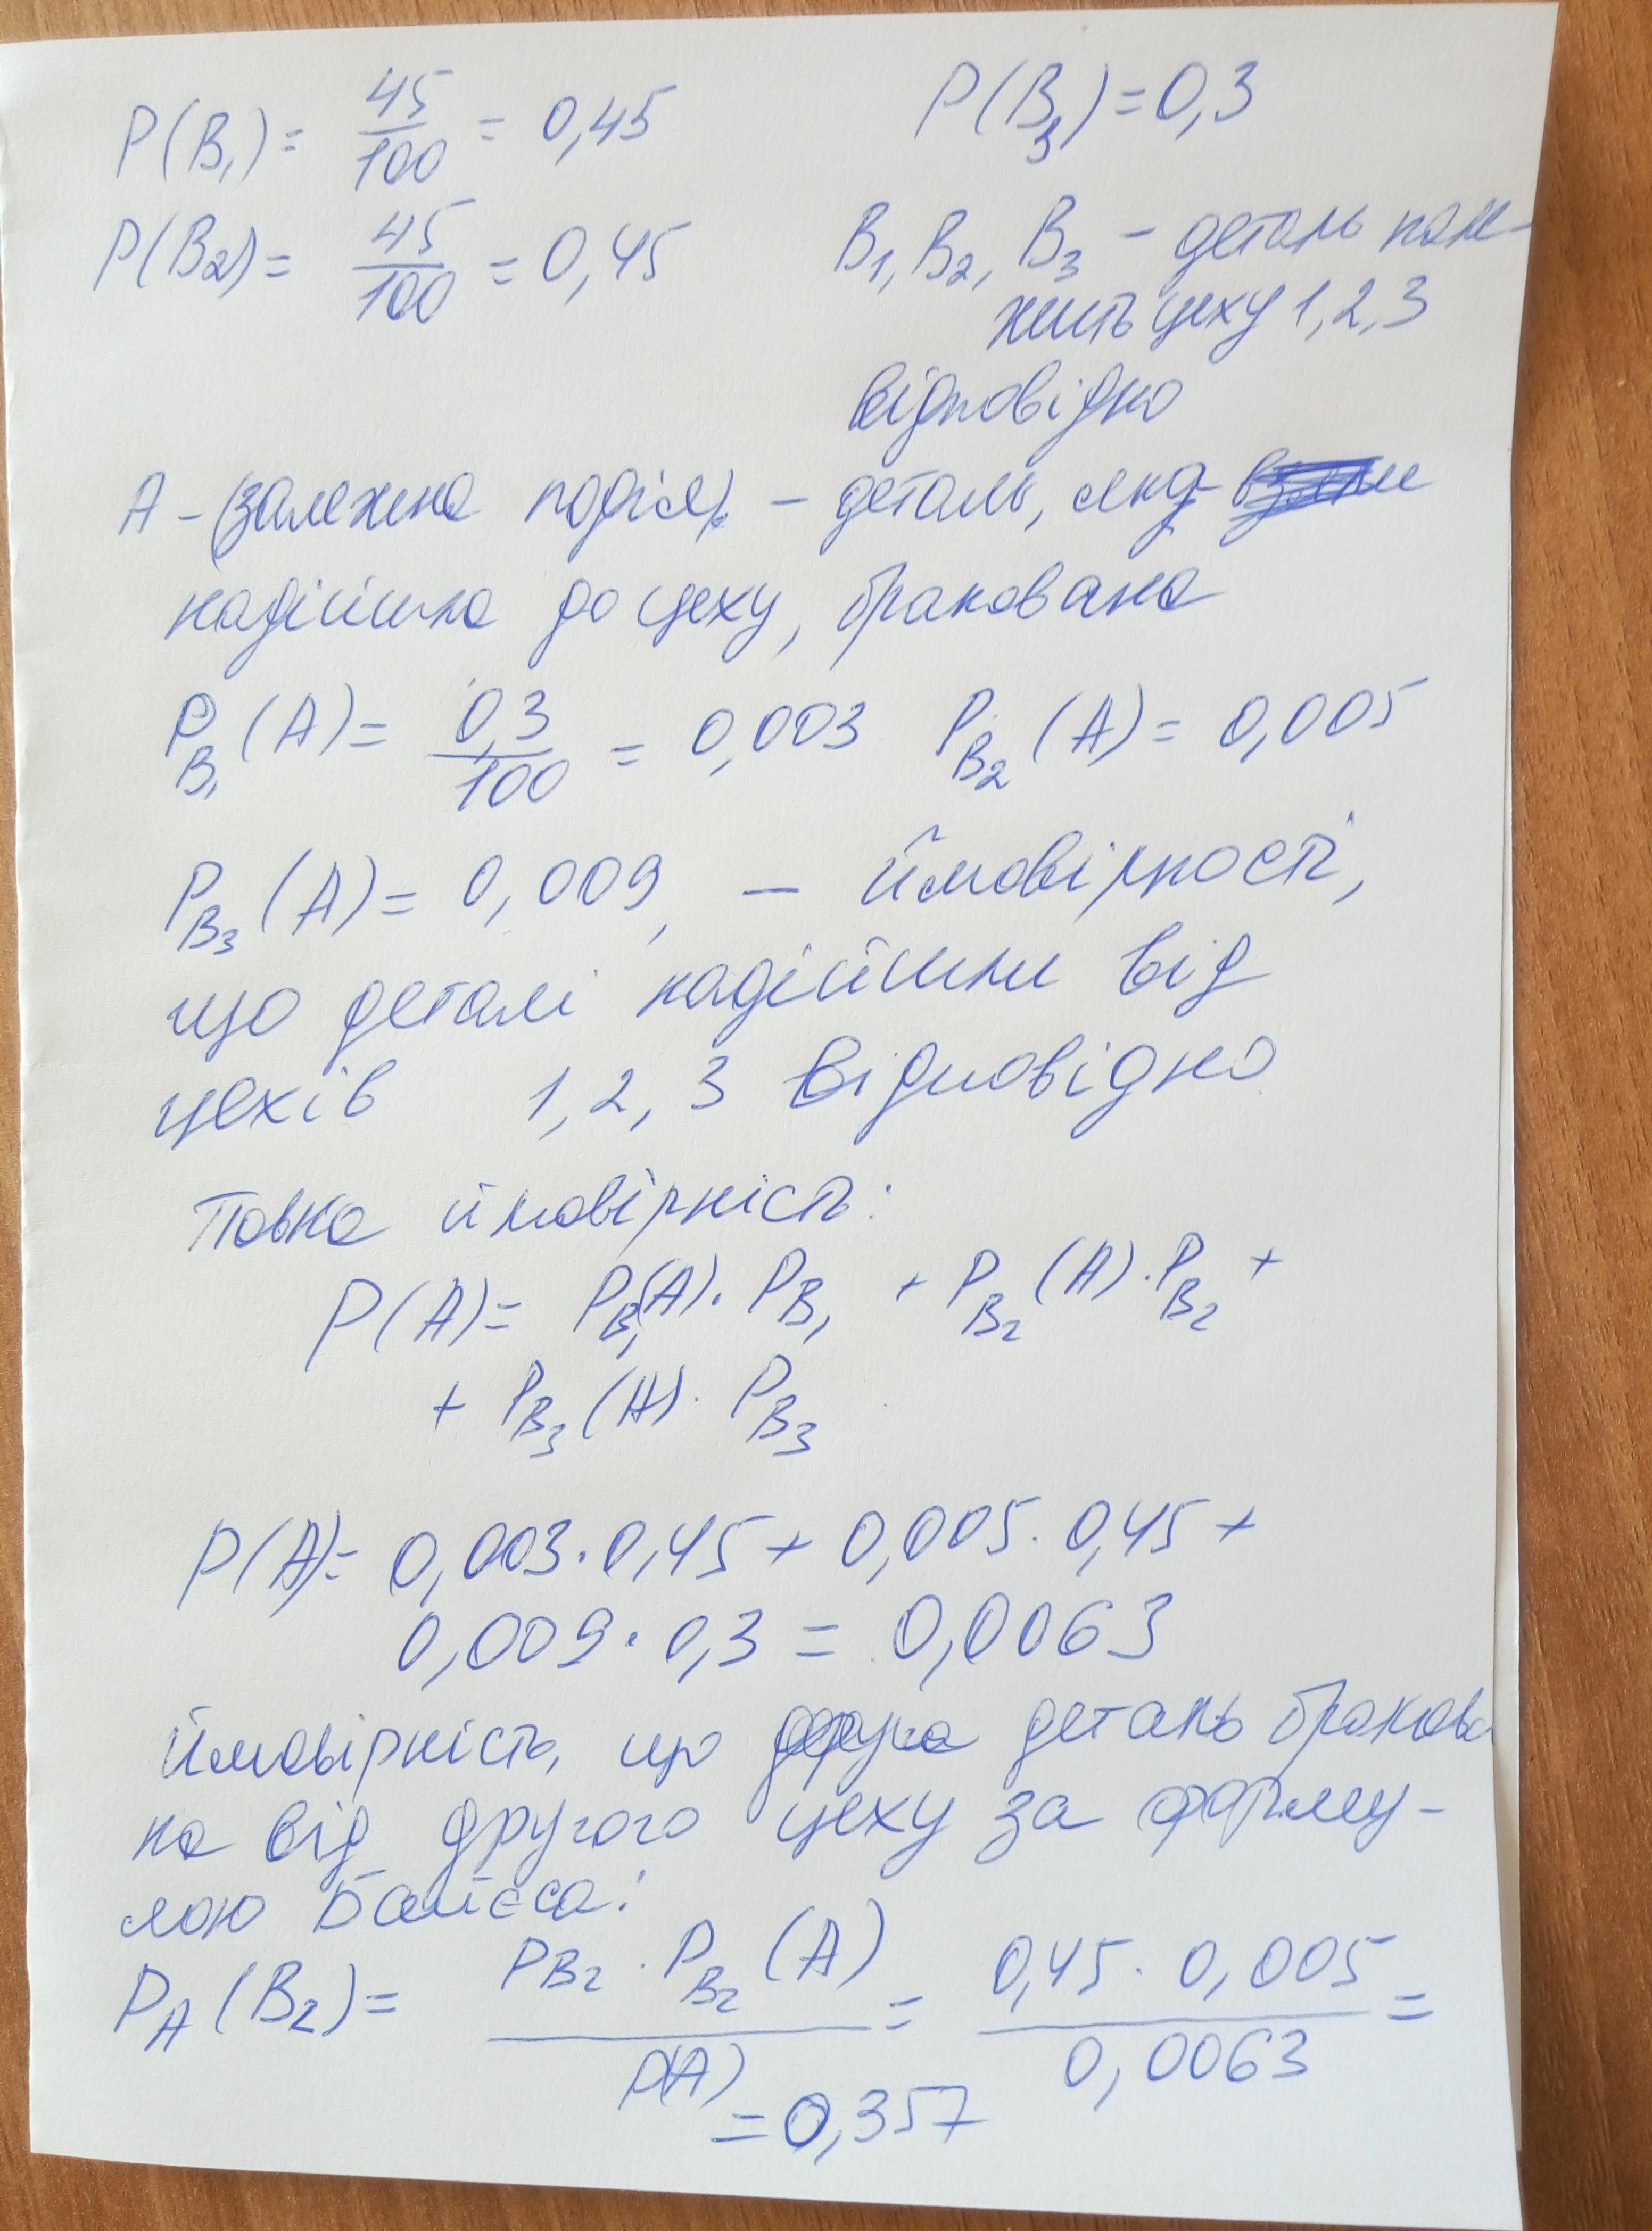 P(B₁) = 45/100 = 0,45
P(B₃) = 0,3
P(B₂) = 45/100 = 0,45
B₁, B₂, B₃ – деталь нале-
жить цеху 1, 2, 3
відповідно
A – (залежна подія) – деталь, яка
надійшла до цеху, бракована
P_B₁(A) = 0,3/100 = 0,003 P_B₂(A) = 0,005
P_B₃(A) = 0,009, – ймовірності,
що деталі надійшли від
цехів 1, 2, 3 відповідно
Повна ймовірність:
P(A) = P_B₁(A) · P_B₁ + P_B₂(A) · P_B₂ +
+ P_B₃(A) · P_B₃
P(A) = 0,003 · 0,45 + 0,005 · 0,45 +
0,009 · 0,3 = 0,0063
Ймовірність, що друга деталь бракова
на від другого цеху за форму-
лою Байєса:
P_A(B₂) = P_B₂ · P_B₂(A) / P(A) = 0,45 · 0,005 / 0,0063 =
= 0,357